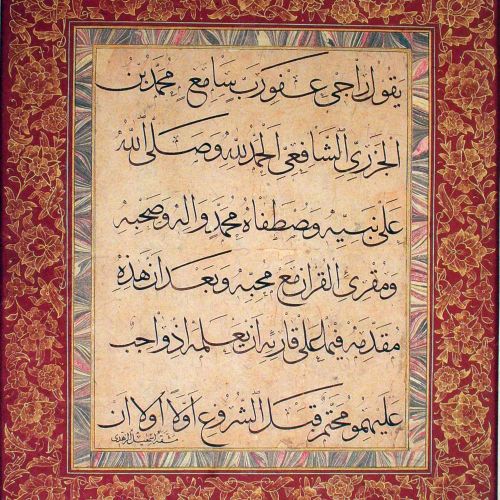 يقول راجي عفو رب سامع محمد بن
الجزري الشافعي الحمد لله وصلى الله
على نبيه ومصطفاه محمد واله وصحبه
ومقرئ القران مع محبه وبعد ان هذه
مقدمه فيما على قارئه ان يعلمه اذ واجب
عليهمو محتم قبل الشروع اولا اولا ان